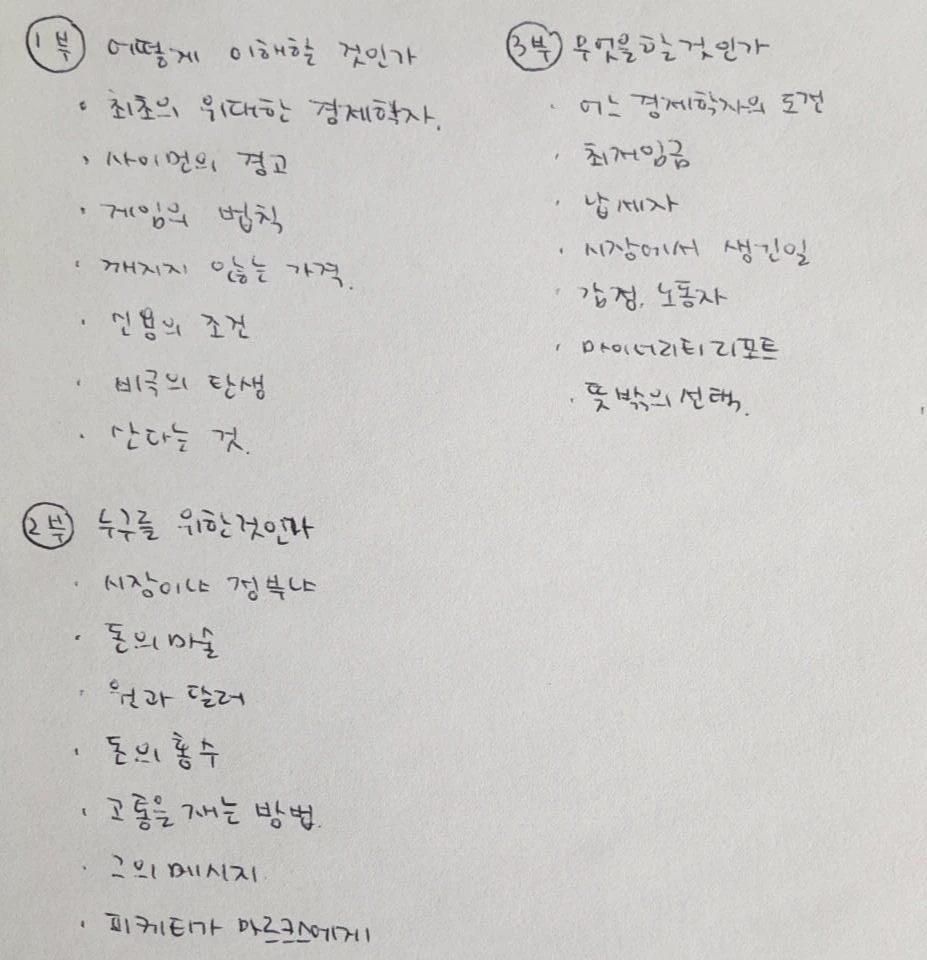 1부 어떻게 이해할 것인가
· 최초의 위대한 경제학자.
· 사이먼의 경고
· 게임의 법칙
· 깨지지 않는 가격.
· 신용의 조건
· 비극의 탄생
· 산다는 것.
2부 누구를 위한것인가
· 시장이냐 정부냐
· 돈의 마술
· 원과 달러
· 돈의 홍수
· 고통을 재는 방법.
· 그의 메시지
· 피케티가 마르크스에게
3부 무엇을 할 것인가
· 어느 경제학자의 도전
· 최저임금
· 납세자
· 시장에서 생긴일
· 감정. 노동자
· 마이너리티 리포트
· 뜻밖의 선택.